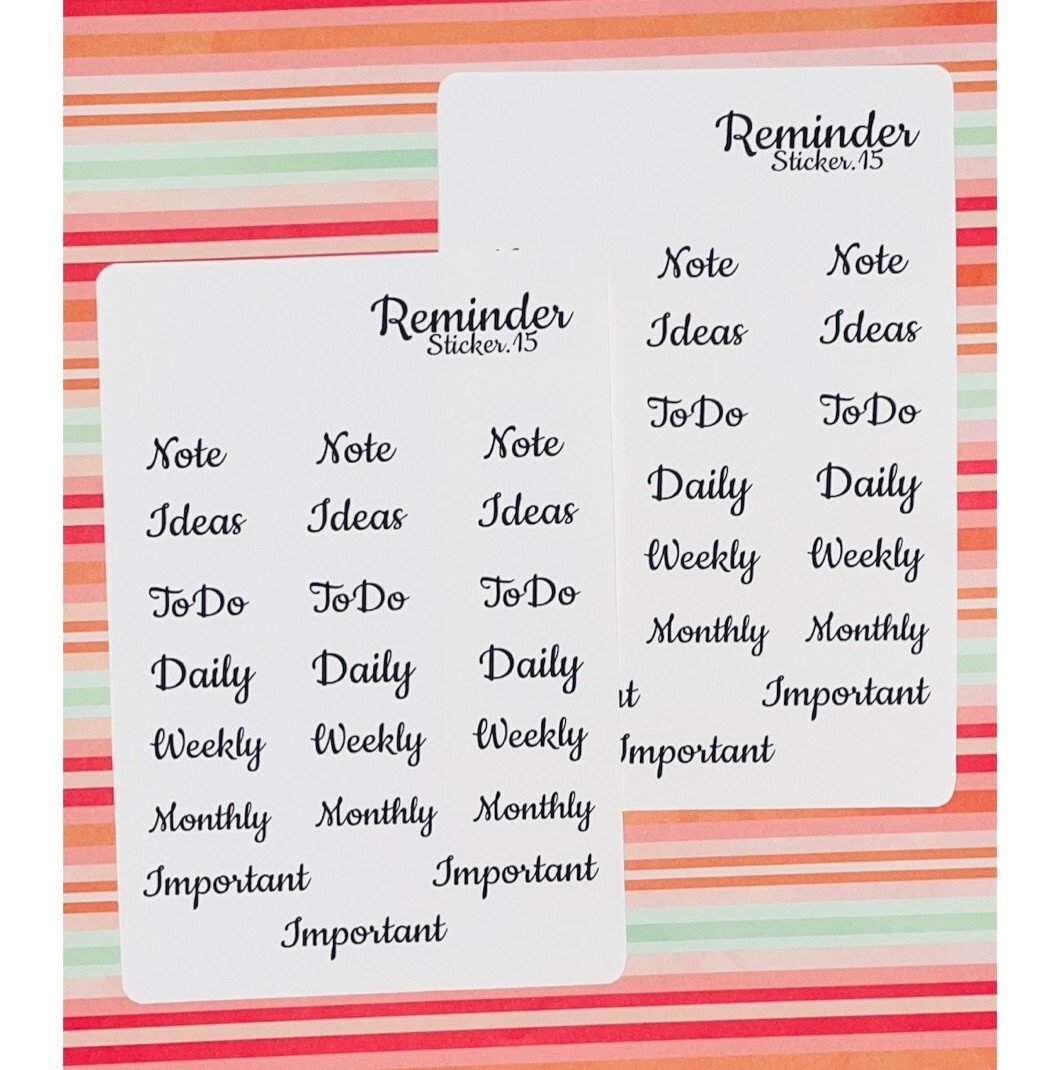 Reminder
Sticker.15
Note Note
Ideas Ideas
ToDo ToDo
Daily Daily
Weekly Weekly
Monthly Monthly
Important
Important
Reminder
Sticker.15
Note Note Note
Ideas Ideas Ideas
ToDo ToDo ToDo
Daily Daily Daily
Weekly Weekly Weekly
Monthly Monthly Monthly
Important Important
Important